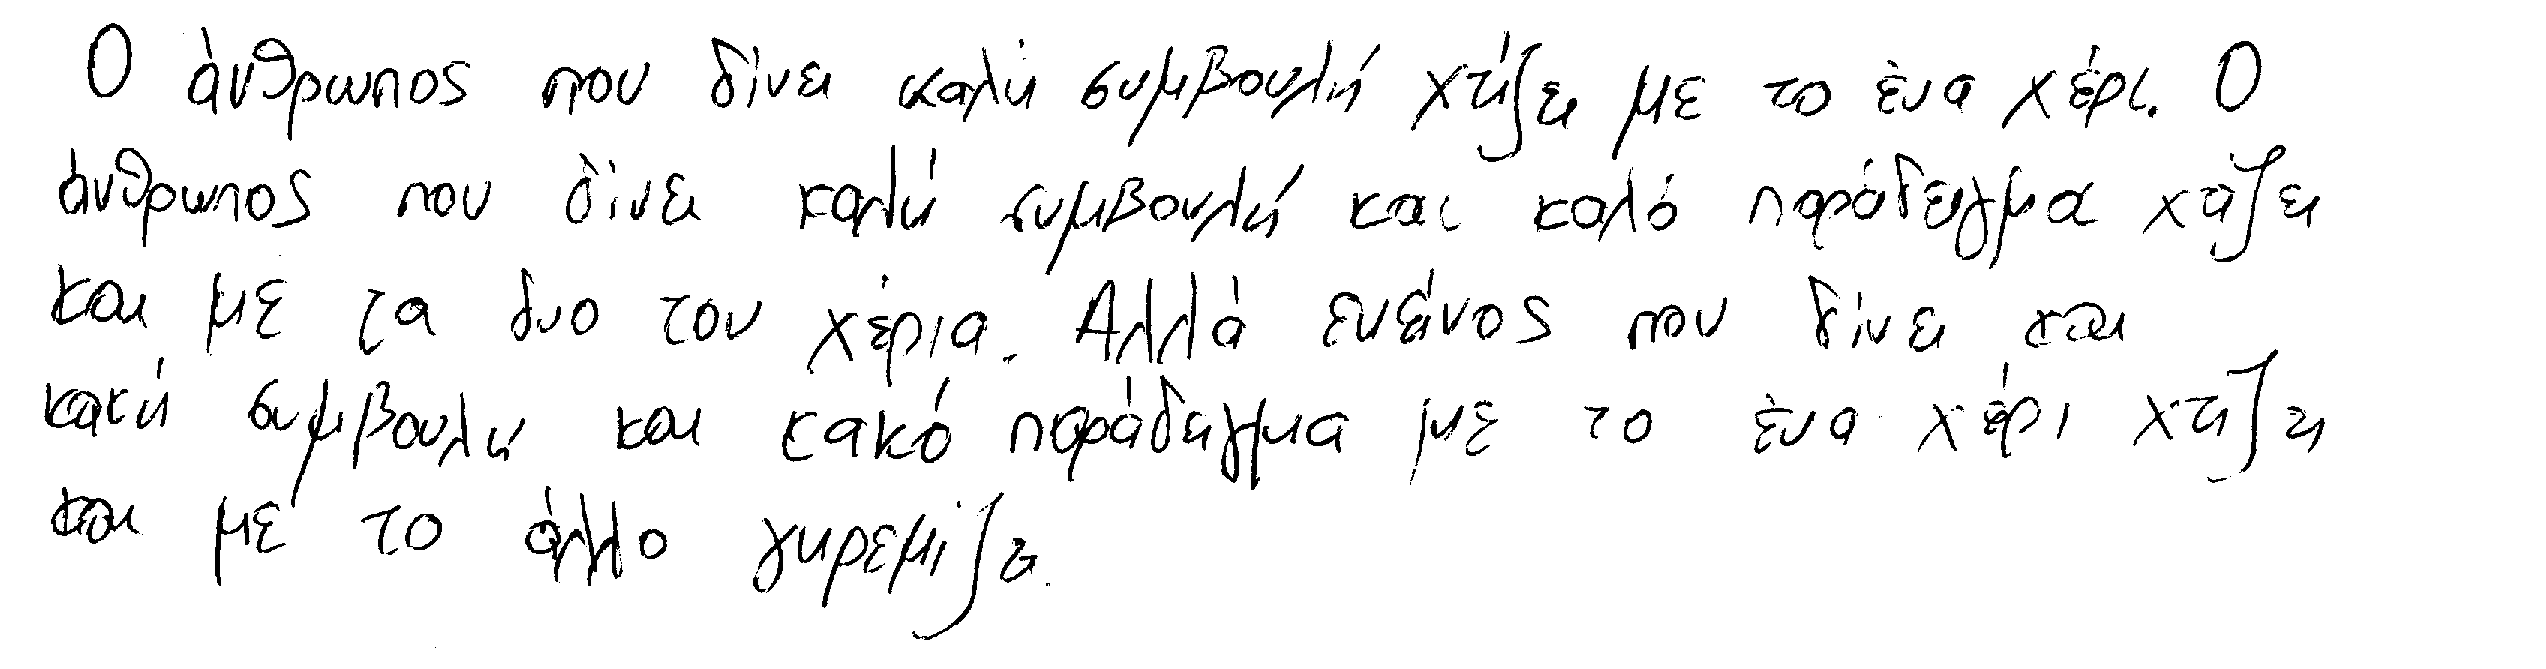 Ο άνθρωπος που δίνει καλή συμβουλή χτίζει με το ένα χέρι. Ο
άνθρωπος που δίνει καλή συμβουλή και καλό παράδειγμα χτίζει
και με τα δυο του χέρια. Αλλά εκείνος που δίνει και
κακή συμβουλή και κακό παράδειγμα με το ένα χέρι χτίζει
και με το άλλο γκρεμίζει.